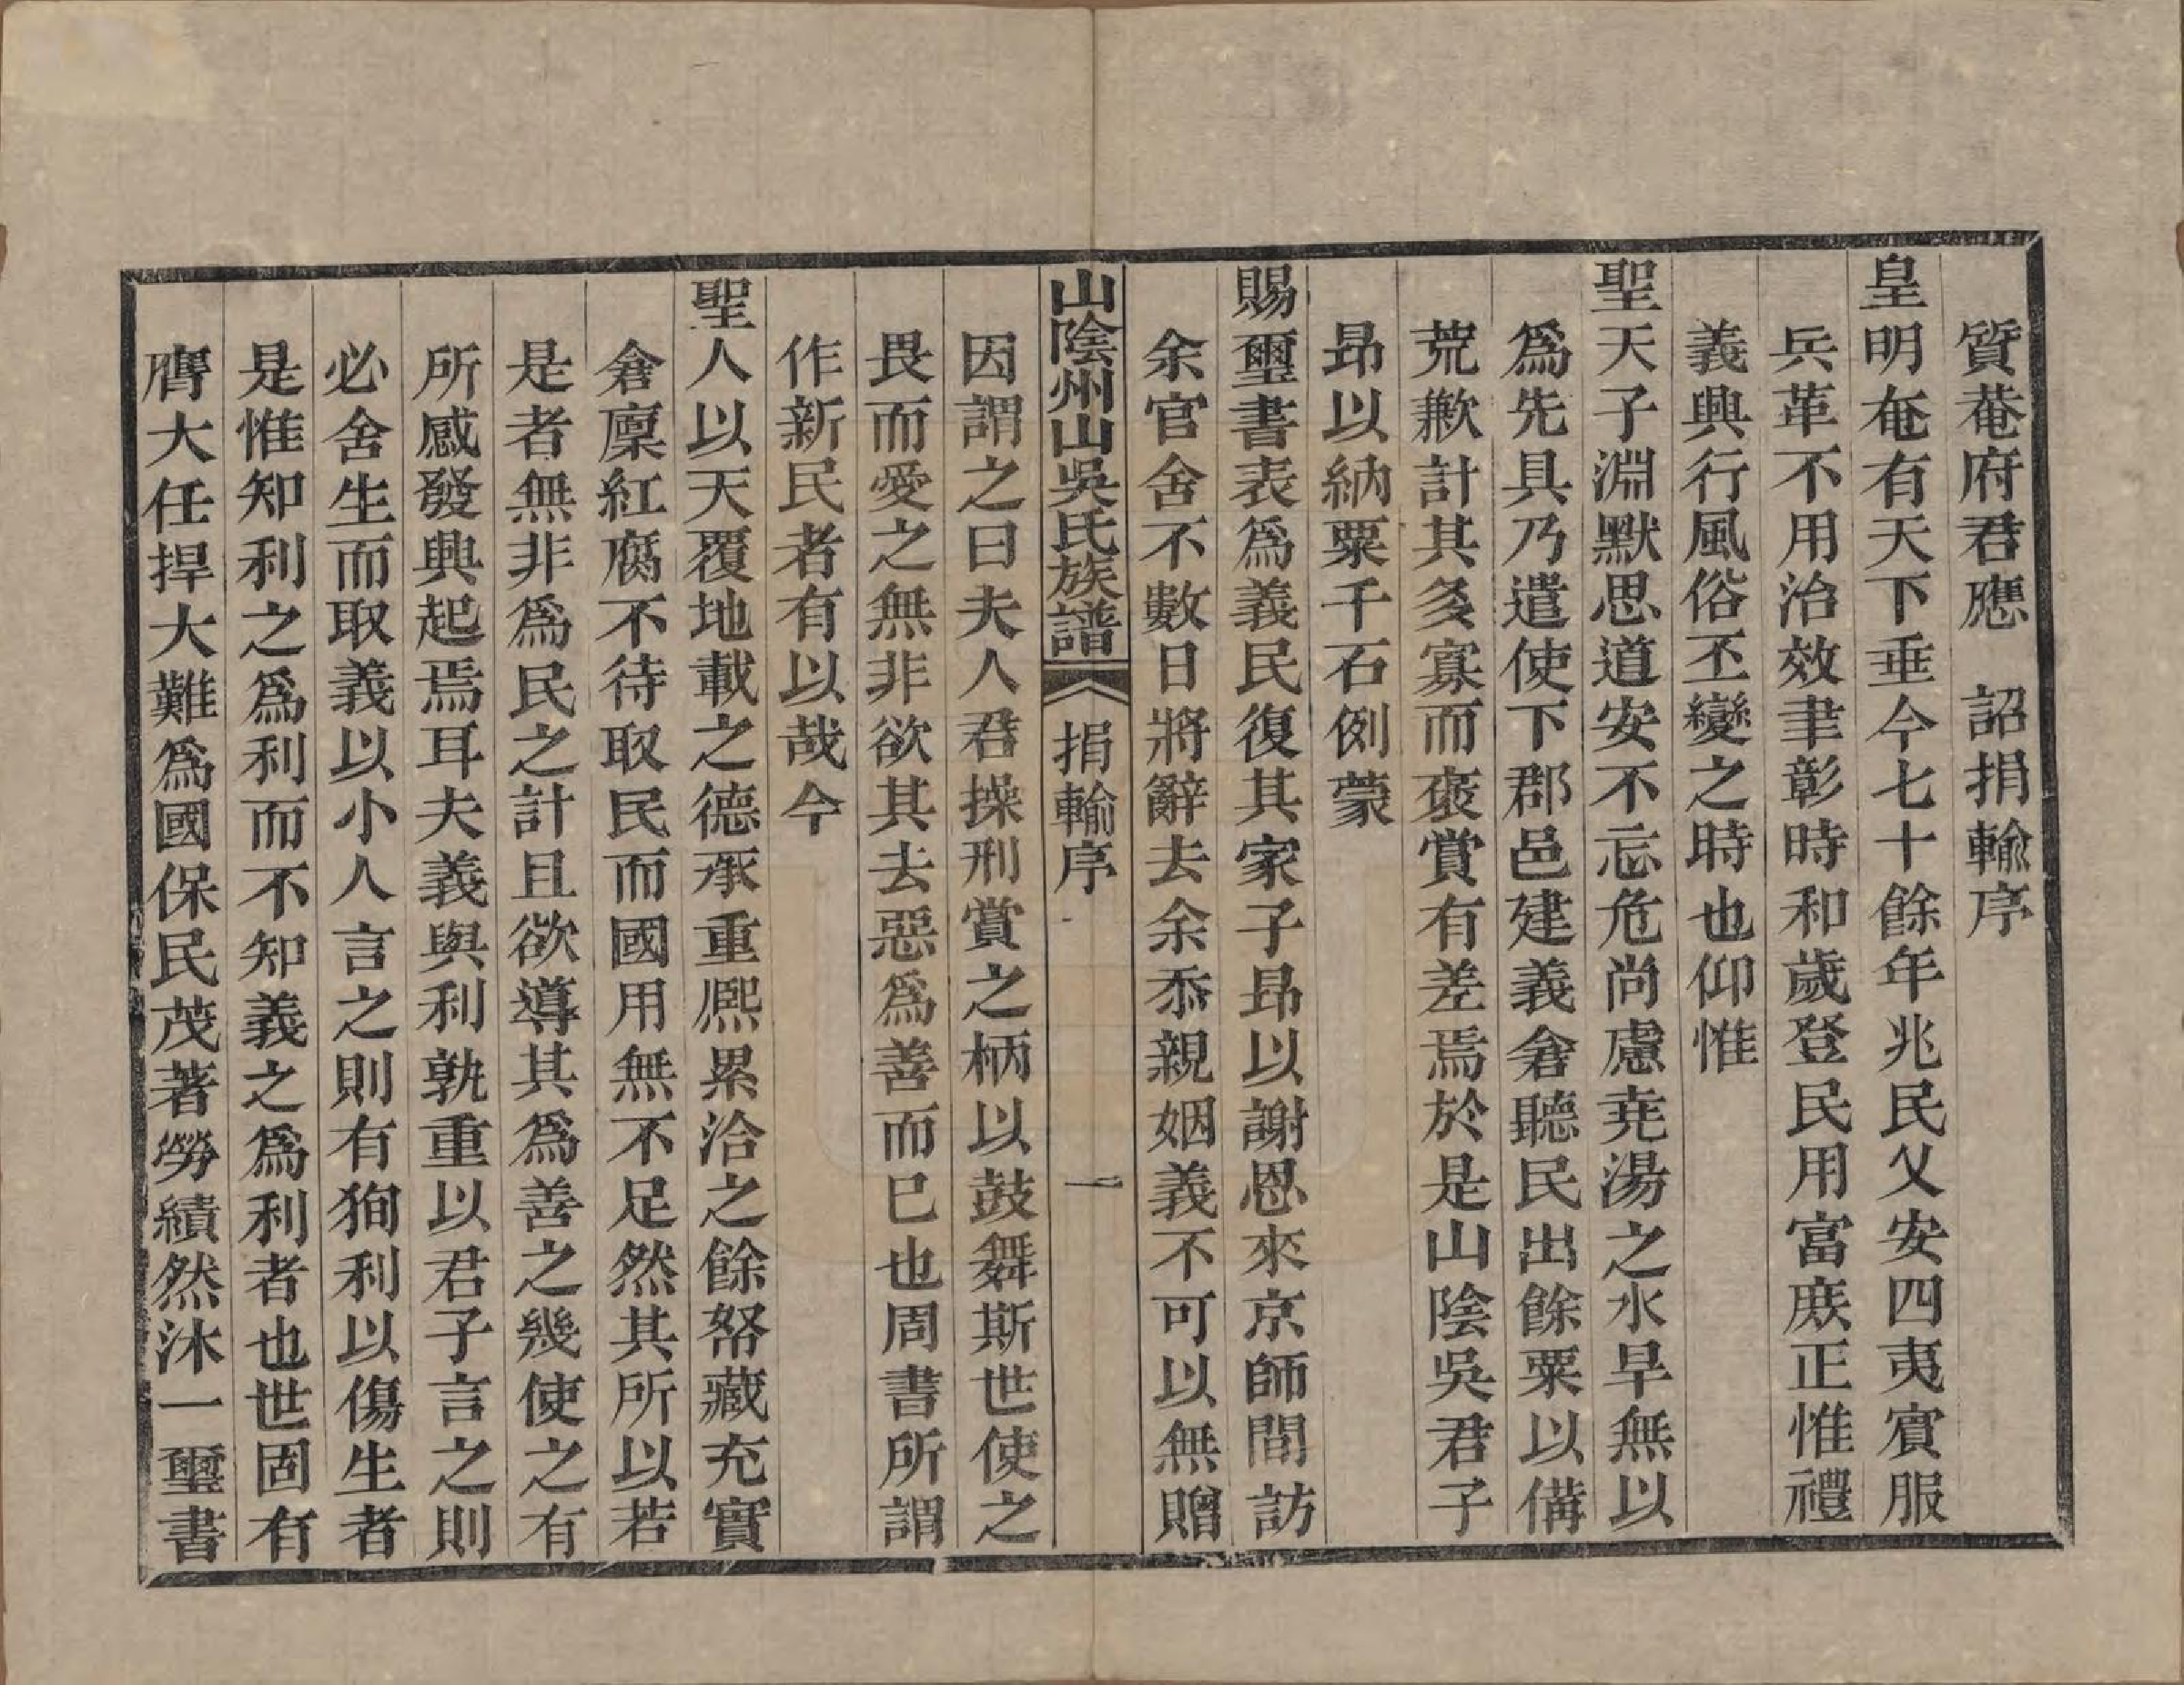 質菴府君應　詔捐輸序
皇明奄有天下垂今七十餘年兆民乂安四夷賓服
兵革不用治效聿彰時和歲登民用富庶正惟禮
義興行風俗丕變之時也仰惟
聖天子淵默思道安不忘危尚慮堯湯之水旱無以
爲先具乃遣使下郡邑建義倉聽民出餘粟以備
荒歉計其多寡而褒賞有差焉於是山陰吳君子
昻以納粟千石例蒙
賜璽書表爲義民復其家子昻以謝恩來京師間訪
余官舍不數日將辭去余忝親姻義不可以無贈
山陰州山吳氏族譜　捐輸序　一
因謂之曰夫人君操刑賞之柄以鼓舞斯世使之
畏而愛之無非欲其去惡爲善而已也周書所謂
作新民者有以哉今
聖人以天覆地載之德承重熙累洽之餘帑藏充實
倉廩紅腐不待取民而國用無不足然其所以若
是者無非爲民之計且欲導其爲善之幾使之有
所感發興起焉耳夫義與利孰重以君子言之則
必舍生而取義以小人言之則有狥利以傷生者
是惟知利之爲利而不知義之爲利者也世固有
膺大任捍大難爲國保民茂著勞績然沐一璽書